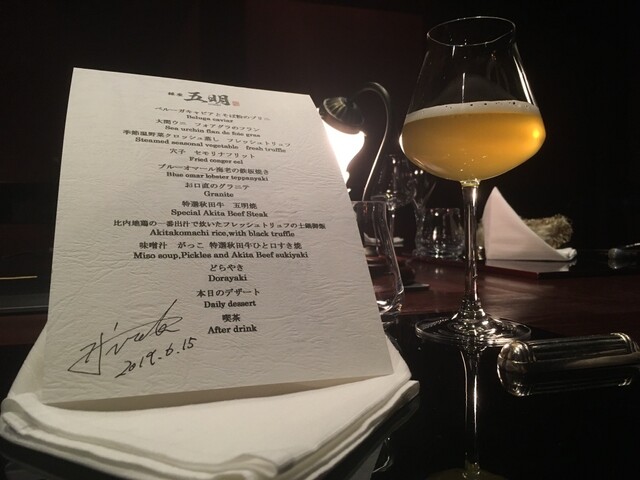 銀座 五明
ベルーガキャビアとそば粉のブリニ
Beluga caviar
大間ウニ フォアグラのフラン
Sea urchin flan de foie gras
季節風野菜クロッシュ蒸し フレッシュトリュフ
Steamed seasonal vegetable fresh truffle
穴子 セモリナフリット
Fried conger eel
ブルーオマール海老の鉄板焼き
Blue omar lobster teppanyaki
お口直のグラニテ
Granite
特選秋田牛 五明焼
Special Akita Beef Steak
比内地鶏の一番出汁で炊いたフレッシュトリュフの土鍋御飯
Akitakomachi rice,with black truffle
味噌汁 がっこ 特選秋田牛ひと口すき焼
Miso soup,Pickles and Akita Beef sukiyaki
どらやき
Dorayaki
本日のデザート
Daily dessert
喫茶
After drink
2019.6.15